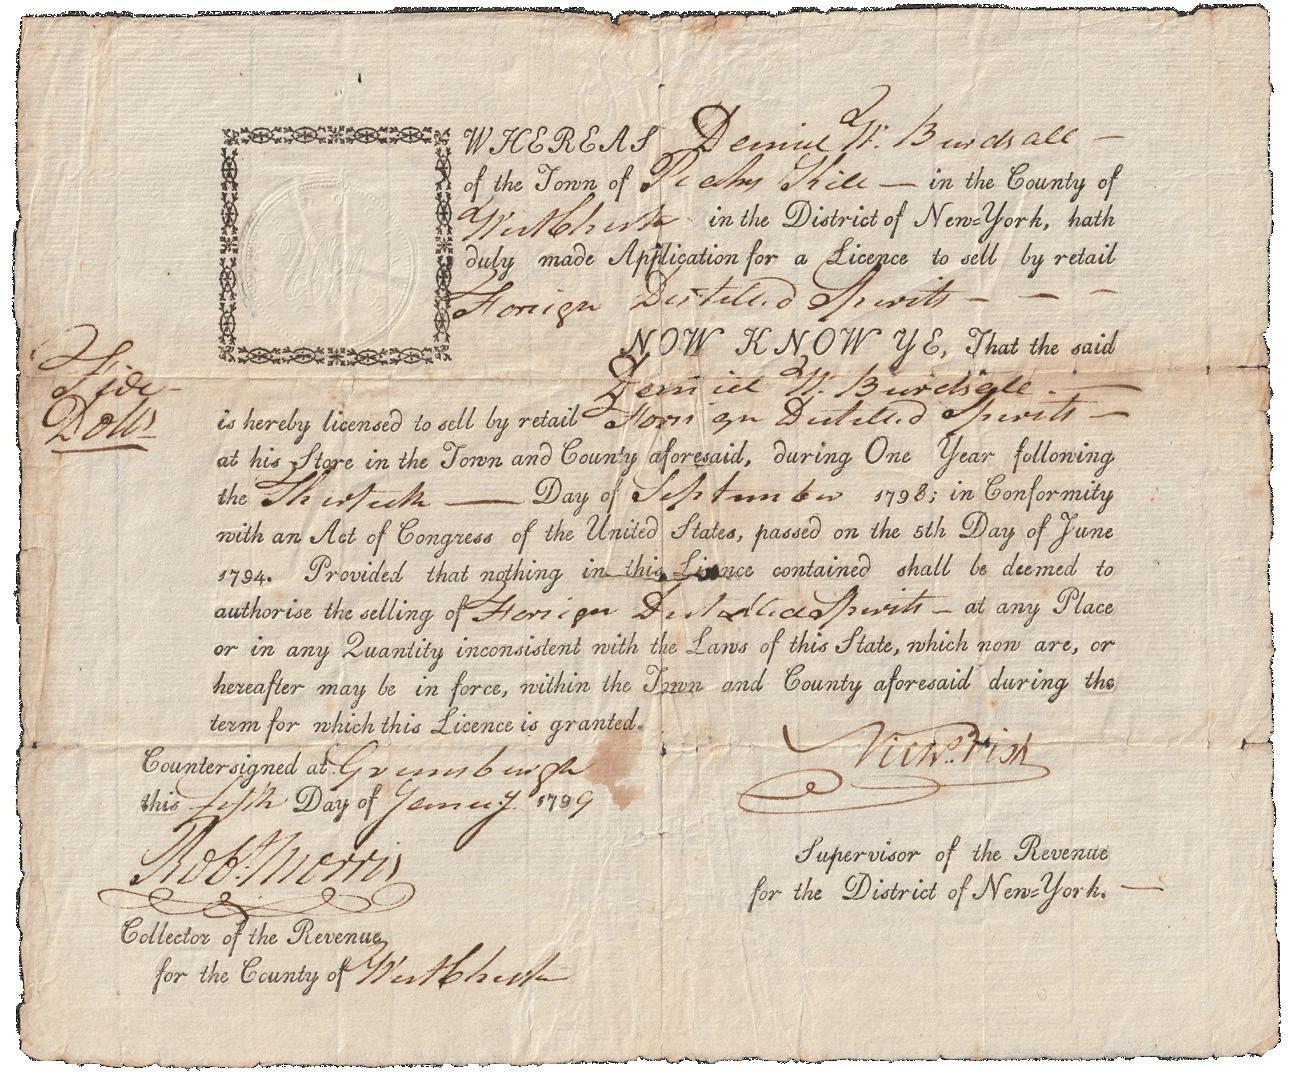 WHEREAS Daniel W. Burdsall —
of the Town of Peeks Kill — in the County of
WestChester in the District of New=York, hath
duly made Application for a Licence to sell by retail
Foreign Distilled Spirits - - -
NOW KNOW YE, That the said
Daniel W. Burdsall. —
Five
Dolls
is hereby licensed to sell by retail Foreign Distilled Spirits —
at his Store in the Town and County aforesaid, during One Year following
the Thirtieth — Day of September 1798; in Conformity
with an Act of Congress of the United States, passed on the 5th Day of June
1794. Provided that nothing in this Licence contained shall be deemed to
authorise the selling of Foreign Distilled Spirits — at any Place
or in any Quantity inconsistent with the Laws of this State, which now are, or
hereafter may be in force, within the Town and County aforesaid during the
term for which this Licence is granted.
Countersigned at Greensburgh
this fifth Day of January 1799
Nichs. Fish
Robt. Morris
Supervisor of the Revenue
for the District of New=York. —
Collector of the Revenue
for the County of WestChester